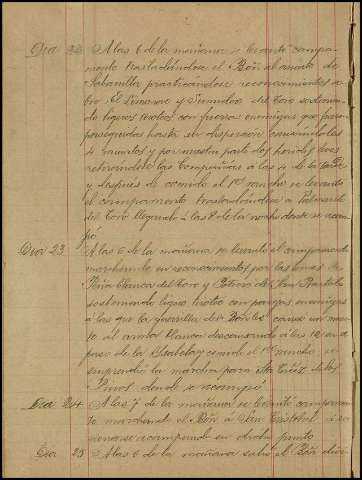 Dia 22 A las 6 de la mañana se levantó campa-
mento trasladándose el Bón al asiento de
Sabanilla practicándose reconocimientos so-
bre El Limonar y del Toro sostenien-
do ligeros tiroteos con fuerzas enemigas que fueron
perseguidas hasta su dispersión causándoles
4 muertos y por nuestra parte dos heridos leves
retirándose las Compañías á las 4 de la tarde
y después de comido el 1er rancho se levantó
el campamento trasladándose á Palmar
del Toro llegando á las 8 de la noche donde se acam-
pó
Dia 23 A las 6 de la mañana se levantó el campamento
marchando en reconocimientos por las lomas de
Peña blanca del Toro y Potrero de San Bartolo
sosteniendo ligero tiroteo con parejas enemigas
á las que la guerrilla del Bón les causó un muer-
to al arma blanca descansando á las 12 en el
paso de la y comido el 1er rancho se
emprendió la marcha para Sta Cruz de los
Pinos donde se acampó
Dia 24 A las 7 de la mañana se levantó campamen-
to marchando el Bón á San Cristobal á ra-
cionarse acampando en dicho punto
Dia 25 A las 6 de la mañana salió el Bón